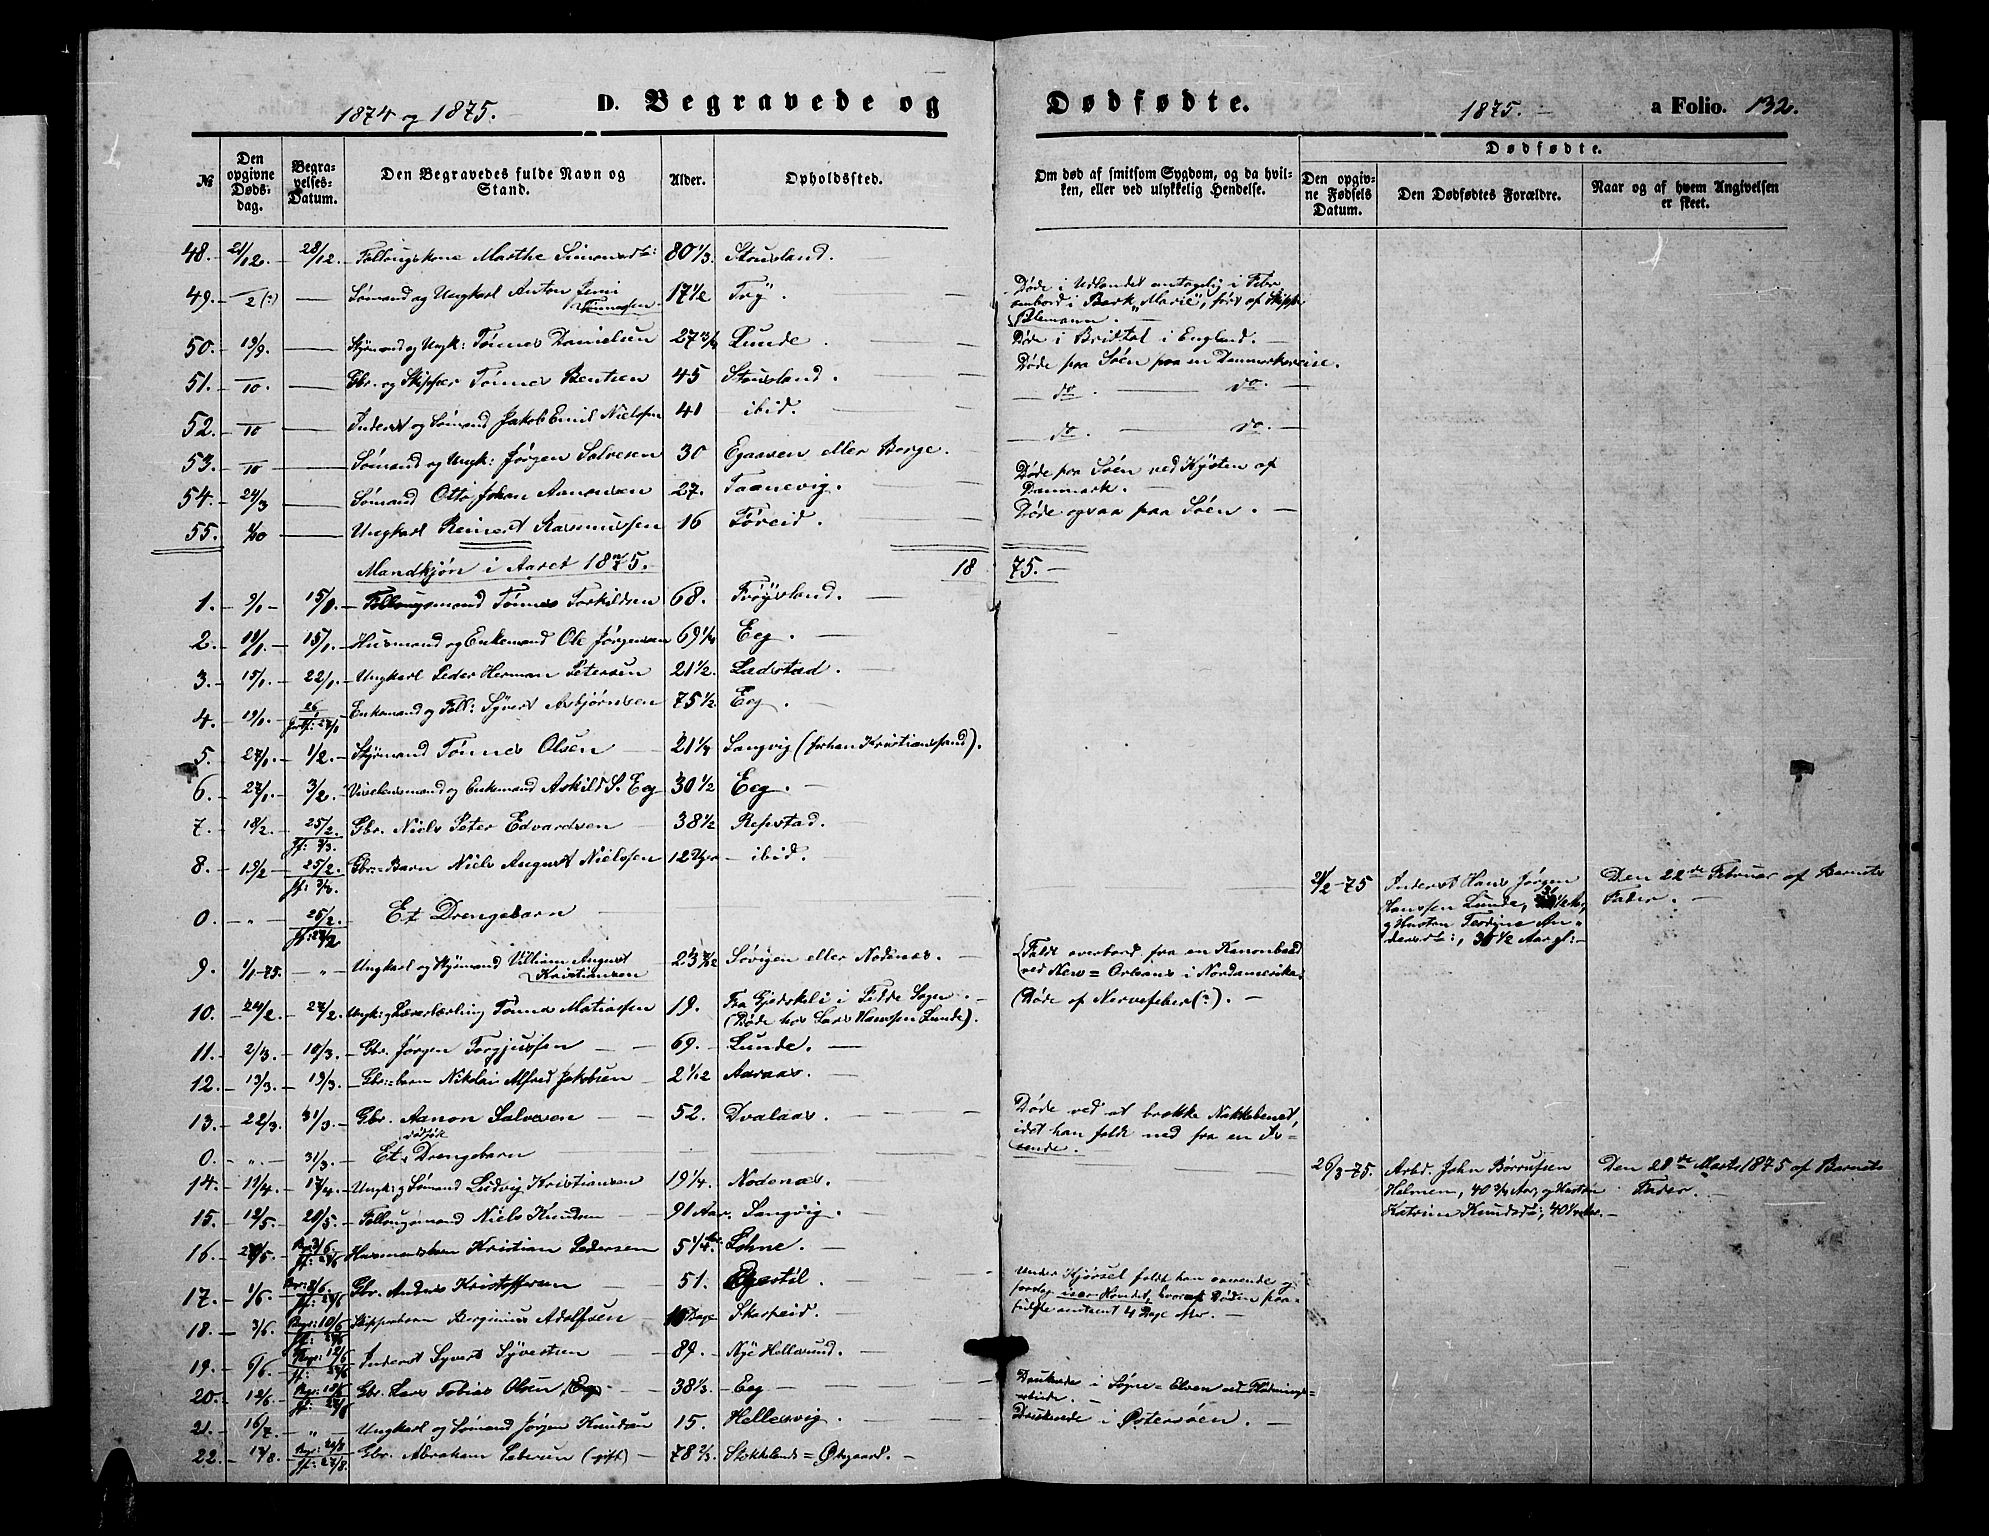 1874 og 1875.
D. Begravede og
Dødfødte.
1875.
a Folio. 132.
№
Den opgivne Døds-dag.
Begra-velses-Datum.
Den Begravedes fulde Navn og Stand.
Alder.
Opholdssted.
Om død af smitsom Sygdom, og da hvil-
ken, eller ved ulykkelig Hendelse.
Dødfødte.
Den opgiv-
ne Fødsels
Datum.
Den Dødfødtes Forældre.
Naar og af hvem Angivelsen
er skeet.
48. 21/12. 28/12. Føllougskone Marthe Simonsdt: 80 1/3. Stousland.
49. /2 (?) Sømand og Ungkarl Anton 17 1/2 Try. Døde i Udlandet antagelig i Febr.
ombord i Bark "Marie", ført af Skipper
50. 19/9. Styrmand og Ungk: Tønnes Danielsen 27 3/4 Lunde. Døde i Bristol i England.
51. /10. Gbr. og Skipper Tønnes Bentsen 45 Stousland. Døde paa Søen paa en Danmarksreise.
52. /10 Inderst og Sømand Jakob Emil Nielsen 41 ibid. do. do.
53. /10 Sømand og Ungk: Jørgen Salvesen 30 Egaasen eller Berge. do. do.
54. 24/3 Sømand Otto Johan Aanensen 27. Taanevig. Døde paa Søen ved Kysten af
Danmark.
55. /10 Ungkarl Reinert Rasmussen 16 Føreid. Døde ogsaa paa Søen.
Mandkjøn i Aaret 1875. 18 75.
1. 9/1. 15/1. Føllougsmand Tønnes Torkildsen 68. Trøysland.
2. 10/1. 15/1. Husmand og Enkemand Ole Jørgensen 69 1/4 Eeg.
3. 15/1. 22/1. Ungkarl Peder Herman Petersen 21 1/2. Ladstad.
4. 19/1. 26/1 Enkemand og Føll: Syvert Asbjørnsen 75 1/2 Eeg.
5. 27/1. 1/2. Styrmand Tønnes Olsen 21 1/4 Langvig (forhen Kristianssand).
6. 27/1. 3/2. Enkemand Askild S. Eeg 30 1/2 Eeg.
7. 18/2. 25/2. Gbr. Niels Peter Edvardsen 38 1/2 Repstad.
8. 19/2 25/2. Gbr:-Barn Niels August Nielssen 12 Uger ibid.
0. " 25/2. Et Drengebarn
21/2-75 Inderst Hans Jørgen
Hanssen Lunde,
og Hustru An-
dersdt:, 36 1/2 Aar gl:
Den 22de Februar af Barnets
Fader.
9. 1/1-75. " Ungkarl og Styrmand Villiam August
Kristiansen 23 Søvigen eller Nodenes. Faldt overbord fra en Kanonbaad
ved New=Orleans i Nordamerika
10. 24/2. 27/2. Ungk: og Tønnes Mathiassen 19. Fra Gjedskeli i Fedde Sogn.
(Døde hos Lars Hanssen Lunde). (Døde af Nervefeber (?).
11. 2/3. 10/3. Gbr. Jørgen Torgjussen 69. Lunde.
12. 13/3. 19/3. Gbr:-barn Nikolai Alfred Jakobsen 2 1/12 Aaraas.
13. 22/3. 31/3. Gbr. Aanon Salvesen 52. Dvalaas. Døde ved at brække Nakkebenet
idet han faldt ned fra en
0. ". 31/3. Et dødfødt Drengebarn
26/3-75. Arbd. John Børrufsen
Holmen, 40 3/4 Aar, og Hustru
Katrine Knudsdt:,
Den 28de Marts 1875 af Barnets
Fader.
14. 12/4. 17/4. Ungk: og Sømand Ludvig Kristiansen 19 1/4. Nodenes.
15. 12/5. 20/5. Føllougsmand Niels Knudsen 91 Aar. Langvig.
16. Husmandsbarn Kristian Pedersen 5 1/4 Lohne.
17. 1/6. Gbr. Anders Kristoffersen 51. Under Kjørsel faldt han
over Hovedet, hvoraf Døden paa-
fulgte omtrent 4 Dage efter.
18. 3/6. Begr: 10/6 Skipperbarn Berginius Adolfsen Dage Skarpeid.
19. 6/6. Begr: 12/6 Inderst Syvert Syvertsen 89. Nye Hellesund.
20. 12/6. Begr: 18/6 Gbr. Lars Tobias Olsen Eeg 38 1/3. Eeg Druknede i Søgne=Elven ved Flødnings-
arbeide.
21. 16/7. " Ungkarl og Sømand Jørgen Knudsen 15. Hellesvig. Druknede i Østersøen.
22. 17/8. Gbr. Abraham Pedersen (gift) 78 2/3. Stokkelands=Øtsgaard.